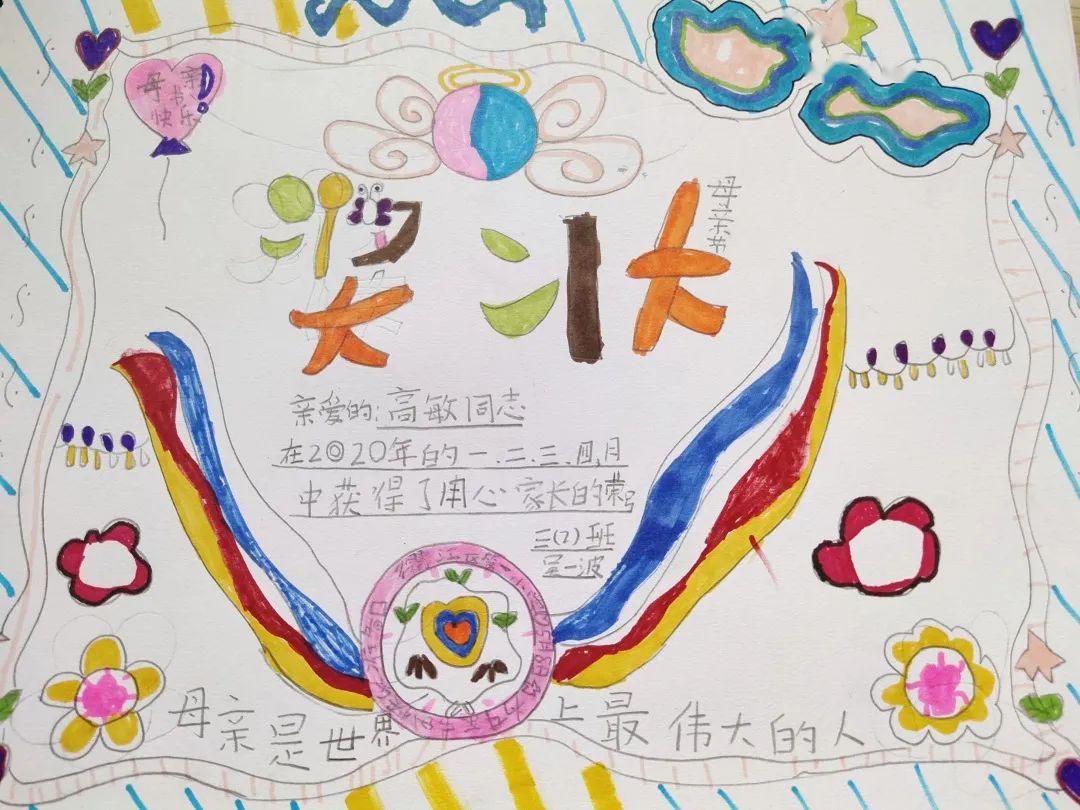 母亲
节
快乐
奖状
母亲节
亲爱的:高敏同志
在2020年的一.二.三.四.月
中获得了用心家长的荣号
三(2)班
一波
母亲是世界上最伟大的人